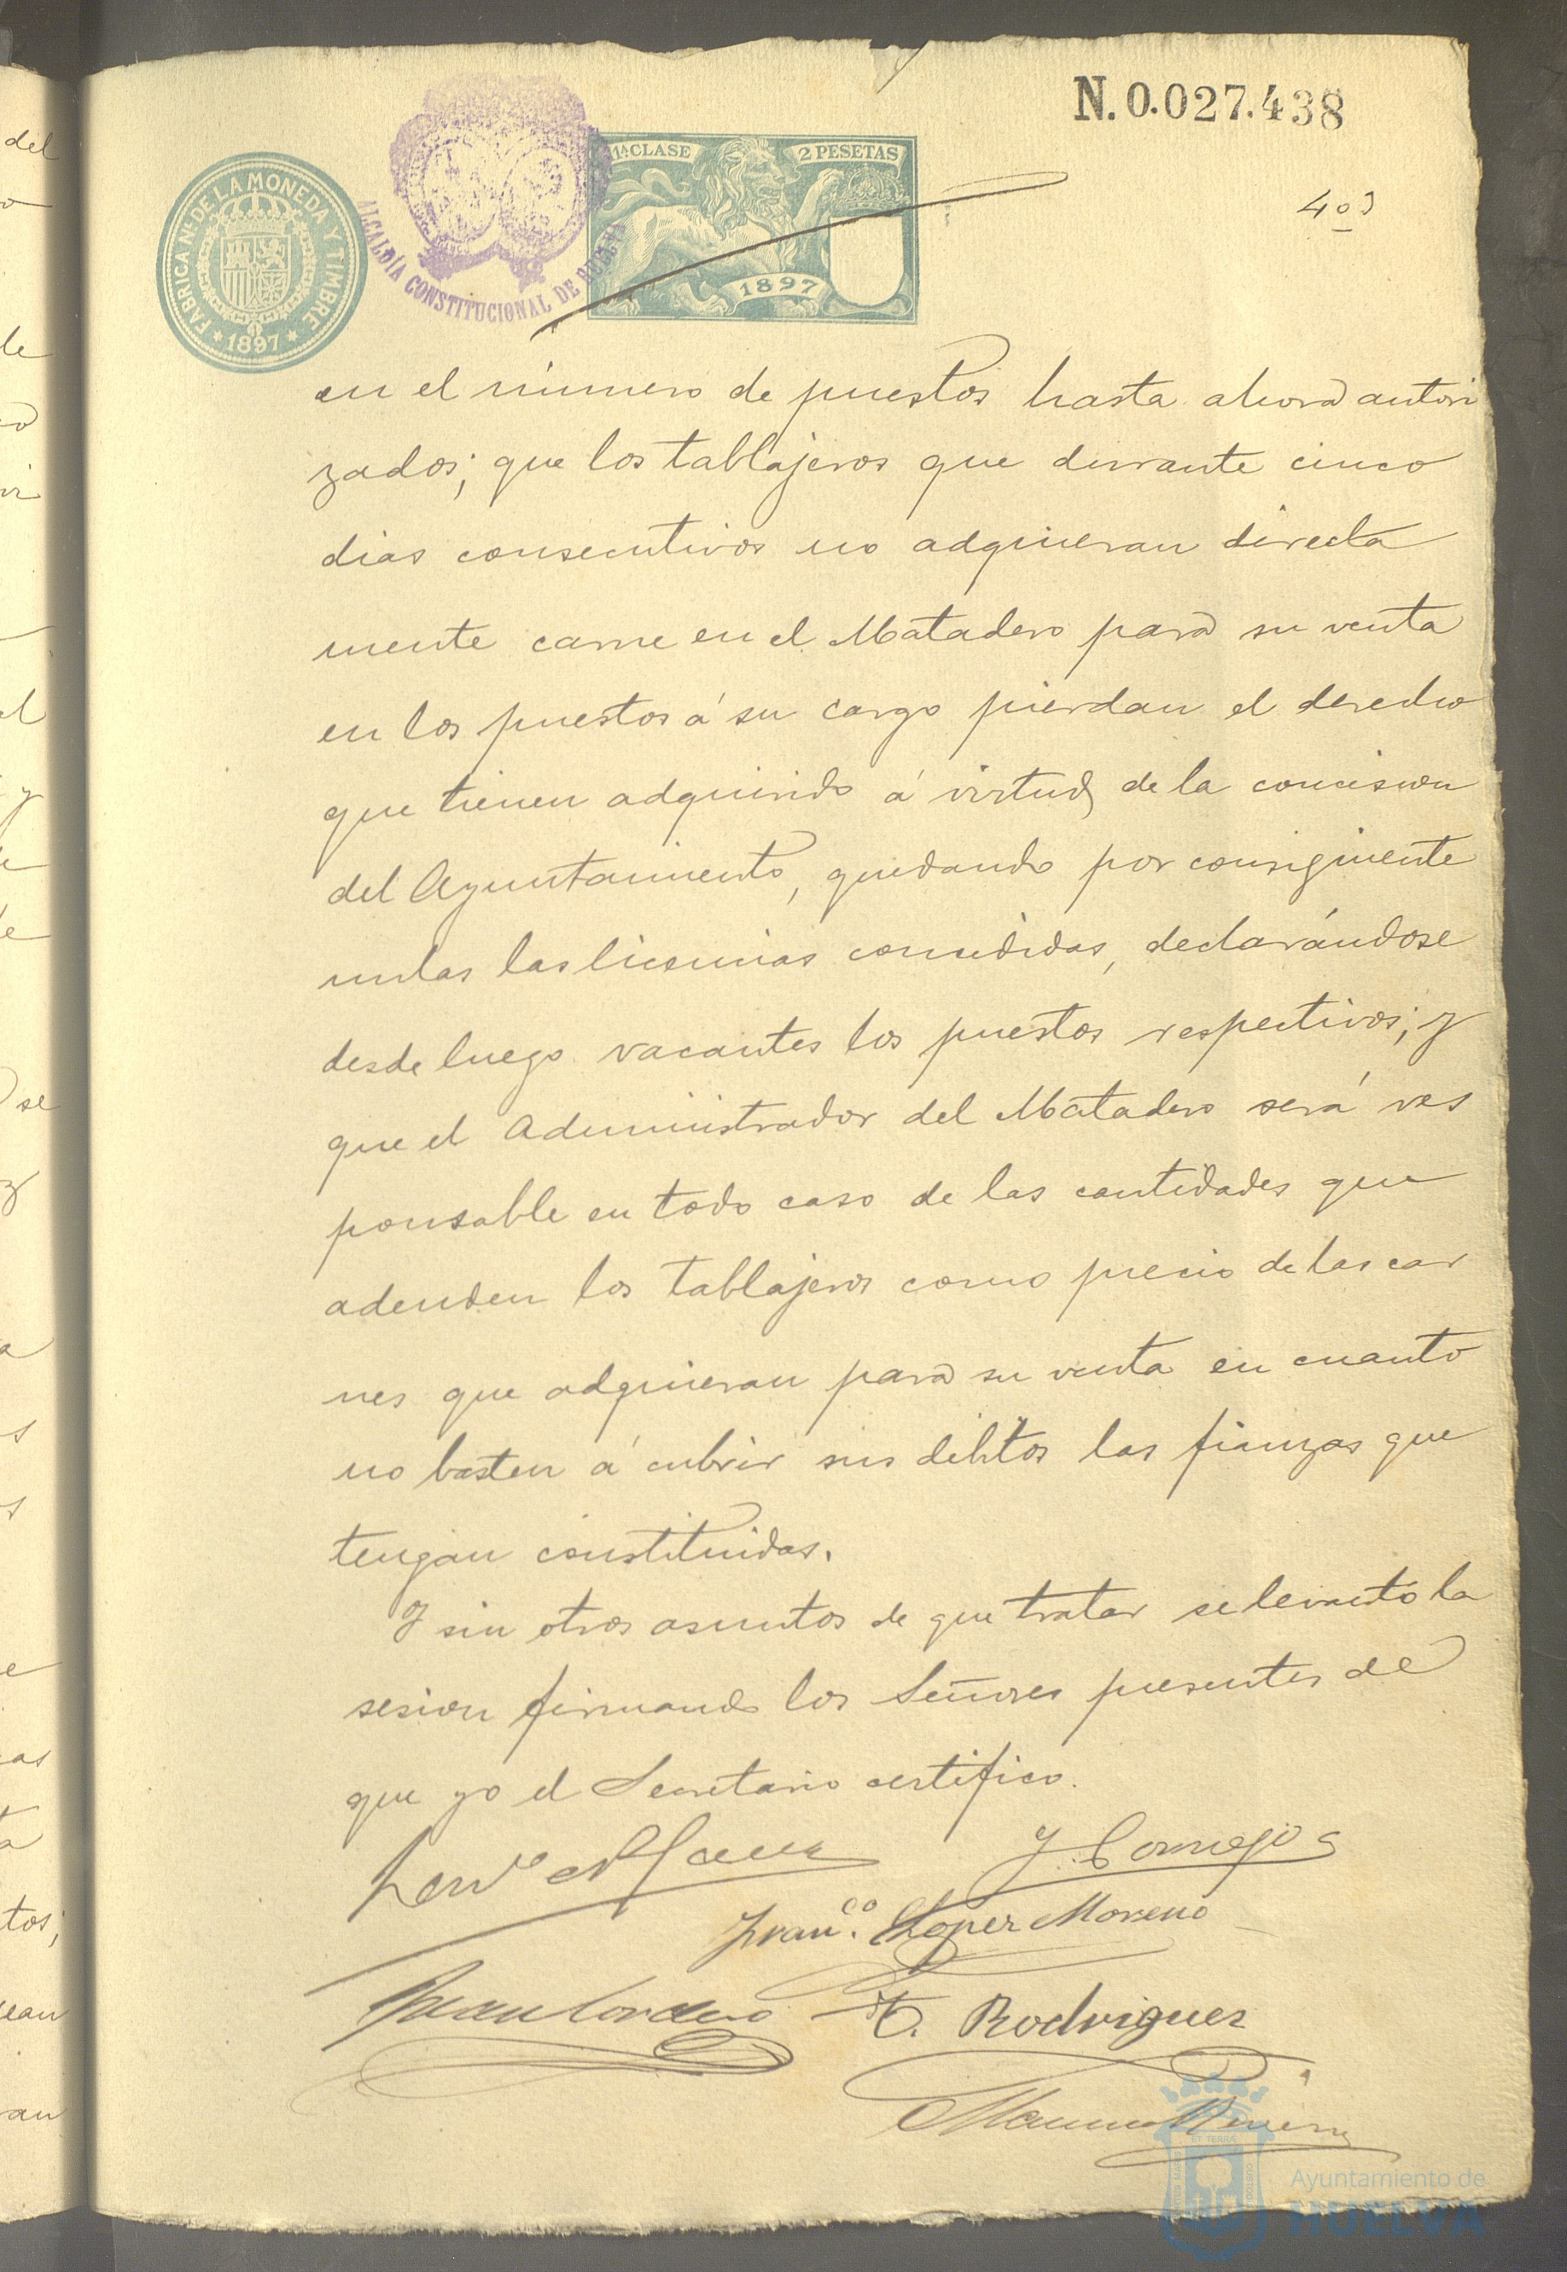 N. 0.027.438
403
FABRICA N.L DE LA MONEDA Y TIMBRE
1897
ALCALDÍA CONSTITUCIONAL DE HUELVA
11ª CLASE 2 PESETAS
1897
en el número de puestos hasta ahora autori
zados; que los tablajeros que durante cinco
dias consecutivos no adquieran directa
mente carne en el Matadero para su venta
en los puestos á su cargo pierdan el derecho
que tienen adquirido á virtud de la concision
del Ayuntamiento, quedando por consiguiente
nulas las licencias concedidas, declarándose
desde luego vacantes los puestos respectivos; y
que el Administrador del Matadero será res
ponsable en todo caso de las cantidades que
adeuden los tablajeros como precio de las car
nes que adquieran para su venta en cuanto
no basten á cubrir sus débitos las fianzas que
tengan constituidas.
Y sin otros asuntos de que tratar se levantó la
sesion firmando los Señores presentes de
que yo el Secretario certifico.
J. Cornejo
Fran.co Lopez Moreno
Juan Cordero
T. Rodriguez
Ayuntamiento de
HUELVA